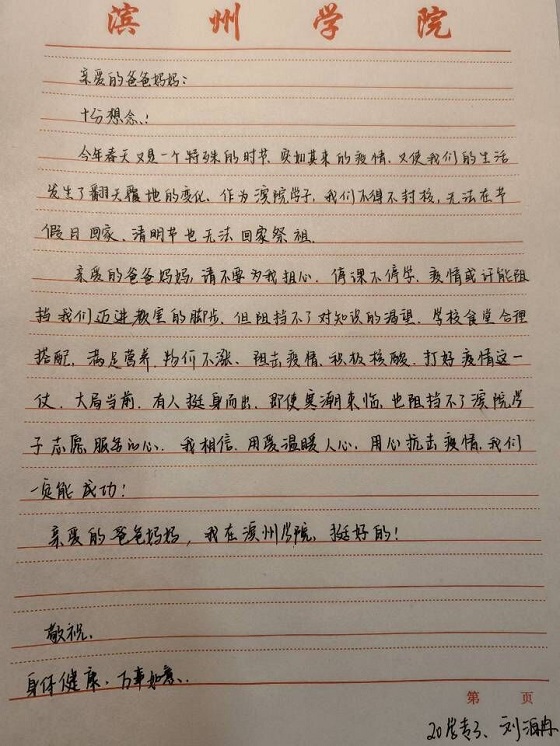 滨州学院
亲爱的爸爸妈妈:
十分想念!
今年春天又是一个特殊的时节,突如其来的疫情,又使我们的生活
发生了翻天覆地的变化,作为滨院学子,我们不得不封校,无法在节
假日回家,清明节也无法回家祭祖.
亲爱的爸爸妈妈,请不要为我担心,停课不停学,疫情或许能阻
挡我们迈进教室的脚步,但阻挡不了对知识的渴望.学校食堂合理
搭配,满足营养,物价不涨,阻击疫情,积极核酸,打好疫情这一
仗.大局当前,有人挺身而出,即使寒潮来临,也阻挡不了滨院学
子志愿服务的心.我相信,用爱温暖人心,用心抗击疫情,我们
一定能成功!
亲爱的爸爸妈妈,我在滨州学院,挺好的!
敬祝.
身体健康,万事如意.
第 页
20学专3、刘